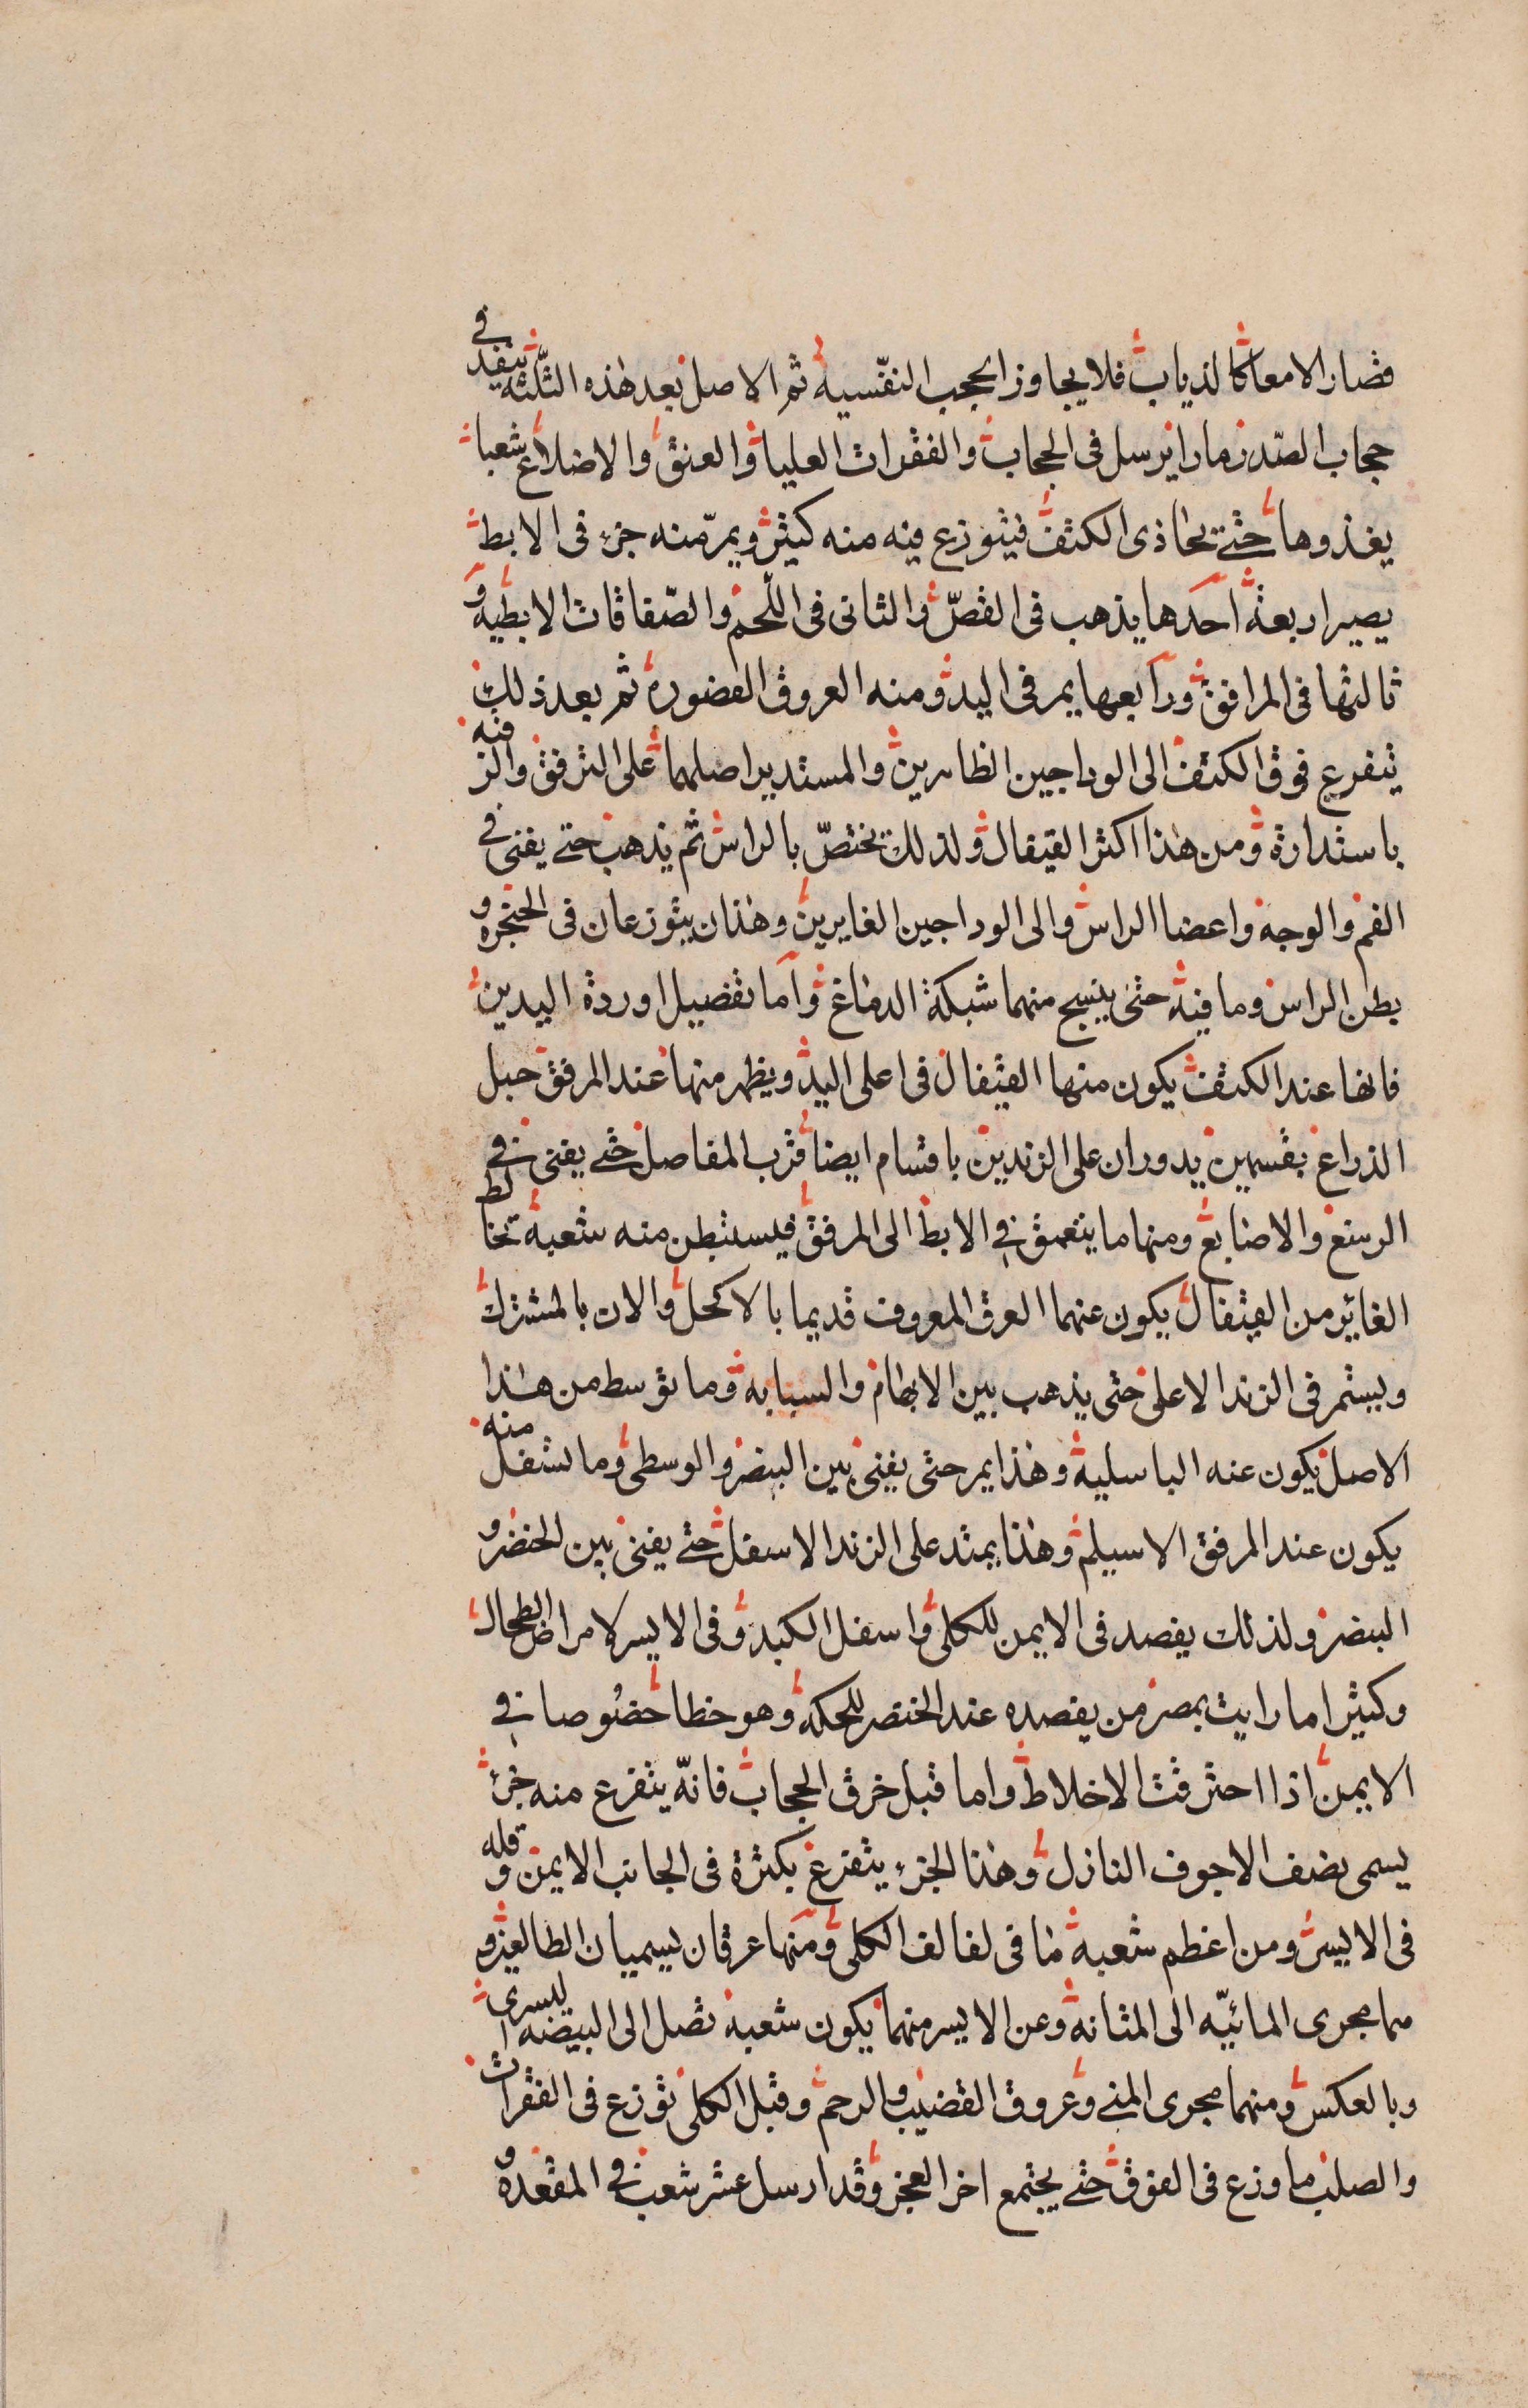 قصار الامعا كالذياب فلا يجاوز الحجب النفسية ثم الاصل بعد هذه الثلثه ينفد في
حجاب الصدر مارا يرسل في الحجاب والفقرات العليا والعنق والاضلاع شعبا
يغذوها حتى يحاذى الكتف فيتوزع فيه منه كثير ويمر منه جزء في الابط
يصير اربعة احدها يذهب في القص والثانى في اللحم والصفاقات الابطيه و
ثالثها في المرافق ورابعها يمر في اليد ومنه العروق المفصوده ثم بعد ذلك
يتفرع فوق الكتف الى الوداجين الظاهرين والمستدير اصلهما على الترقوة والز فيه
باستدارة ومن هذا اكثر القيفال ولذلك يختص بالراس ثم يذهب حتى يفنى في
الفم والوجه واعضا الراس والى الوداجين الغايرين وهذان يتوزعان في الحنجره و
بطن الراس وما فيه حتى ينسج منهما شبكة الدماغ واما تفصيل اوردة اليدين
فانها عند الكتف يكون منها القيفال في اعلى اليد ويظهر منها عند المرفق حبل
الذراع بقسمين يدوران على الزندين باقسام ايضا قرب المفاصل حتى يفنى في
الرسغ والاصابع ومنها ما يتعمق في الابط الى المرفق فيستبطن منه شعبة تخالط
الغائر من القيفال يكون عنهما العرق المعروف قديما بالاكحل والان بالمشترك
ويستمر في الزند الاعلى حتى يذهب بين الابهام والسبابه وما توسط من هذا
الاصل يكون عنه الباسليق وهذا يمر حتى يفنى بين البنصر والوسطى وما تسفل منه
يكون عند المرفق الاسيلم وهذا يمتد على الزند الاسفل حتى يفنى بين الخنصر و
البنصر ولذلك يفصد في الايمن للكلى واسفل الكبد وفى الايسر لامراض الطحال
وكثيرا ما رايت بمصر من يفصده عند الخنصر للحكه وهو خطا خصوصا في
الايمن اذا احترقت الاخلاط واما قبل خرق الحجاب فانه يتفرع منه جزء
يسمى نصف الاجوف النازل وهذا الجزء يتفرغ بكثرة في الجانب الايمن وقله
في الايسر ومن اعظم شعبة ما في لفائف الكلى ومنها عرقان يسميان الطالعين و
هما مجرى المائيه الى المثانة وعن الايسر منهما يكون شعبة تصل الى البيضه اليسرى
وبالعكس ومنهما مجرى المني وعروق القضيب والرحم وقبل الكلى توزع في الفقرات
والصلب ما وزع في الفوق حتى يجتمع اخر العجز وقد ارسل عشر شعب في المقعده و